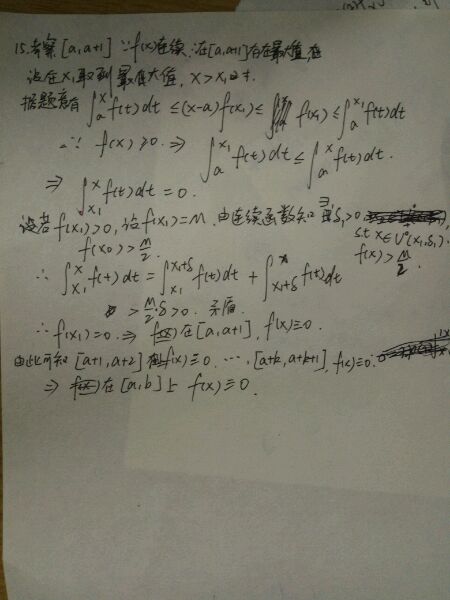 15.考察[a,a+1] ∵f(x)连续.∴在[a,a+1]存在最大值,
设在x₁取到最大值, x>x₁时.
据题意有 ∫ₐˣ f(t)dt ≤(x-a)f(x₁)≤ f(x₁) ≤∫ₐˣ¹ f(t)dt
∵ f(x)≥0. ⇒ ∫ₐˣ¹ f(t)dt ≤ ∫ₐˣ f(t)dt.
⇒ ∫ₓ₁ˣ f(t)dt = 0.
f(x₁)>0, 设f(x₁)=M. 由连续函数知 ∃δ₁>0
s.t x∈U°(x₁,δ₁).
f(x)>M/2 f(x)>M/2.
∴ ∫ₓ₁ˣ f(t)dt = ∫ₓ₁ˣ¹⁺ᵟ f(t)dt + ∫ₓ₁₊δˣ f(t)dt
> M/2·δ>0. 矛盾.
∴ f(x₁)=0. ⇒ 在[a,a+1], f(x)≡0.
由此可知[a+1,a+2] f(x)≡0. ⋯, [a+k,a+k+1] f(x)≡0.
⇒ 在[a,b]上 f(x)≡0.